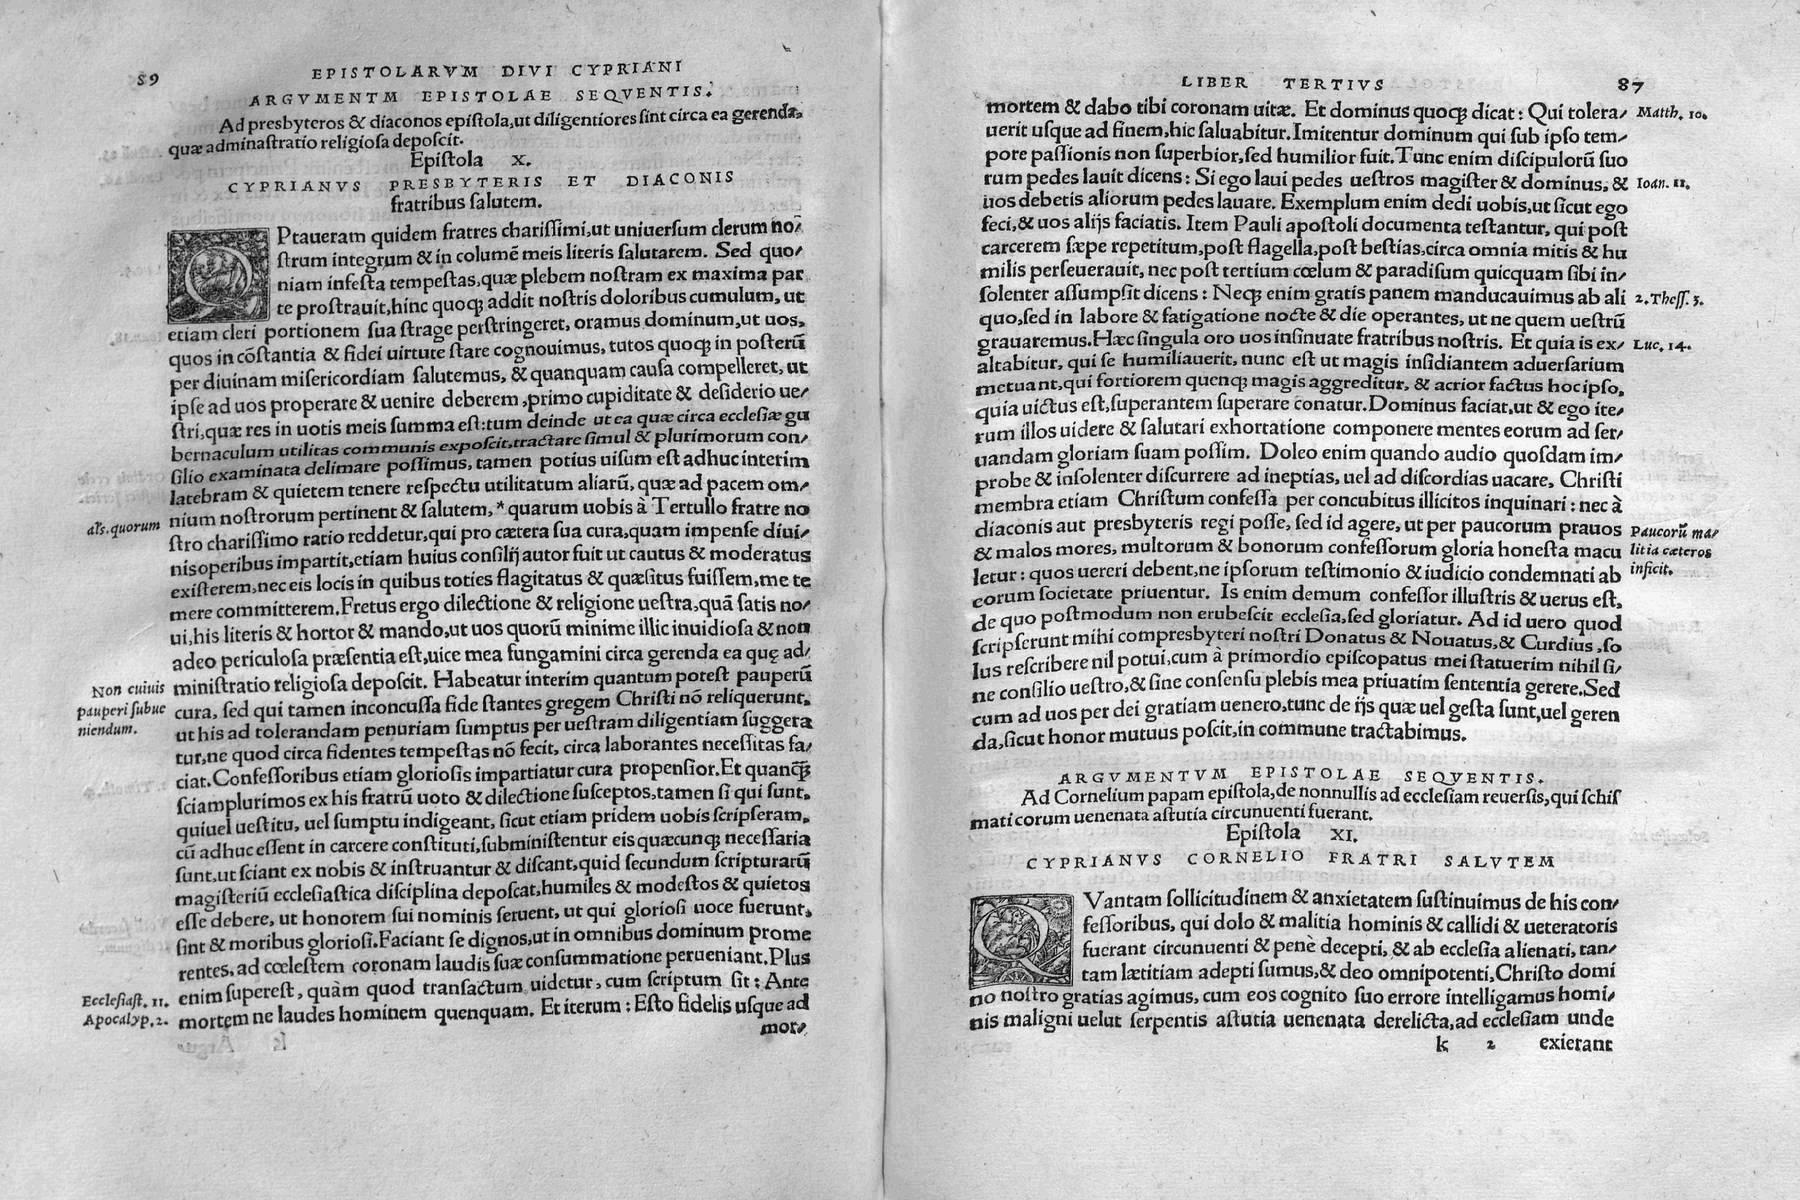 89
EPISTOLARVM DIVI CYPRIANI
ARGVMENTM EPISTOLAE SEQVENTIS.
Ad presbyteros & diaconos epiſtola,ut diligentiores ſint circa ea gerenda,
quæ adminaſtratio religioſa depoſcit.
Epiſtola X.
CYPRIANVS PRESBYTERIS ET DIACONIS
fratribus ſalutem.
OPtaueram quidem fratres chariſſimi,ut uniuerſum clerum no/
ſtrum integrum & in columẽ meis literis ſalutarem. Sed quo/
niam infeſta tempeſtas,quæ plebem noſtram ex maxima par
te proſtrauit,hinc quoqꝫ addit noſtris doloribus cumulum, ut
etiam cleri portionem ſua ſtrage perſtringeret, oramus dominum,ut uos,
quos in cõſtantia & fidei uirtute ſtare cognouimus, tutos quoqꝫ in poſterũ
per diuinam miſericordiam ſalutemus, & quanquam cauſa compelleret, ut
ipſe ad uos properare & uenire deberem,primo cupiditate & deſiderio ue/
ſtri,quæ res in uotis meis ſumma eſt:tum deinde ut ea quæ circa eccleſiæ gu
bernaculum utilitas communis expoſcit,tractare ſimul & plurimorum con/
ſilio examinata delimare poſſimus, tamen potius uiſum eſt adhuc interim
latebram & quietem tenere reſpectu utilitatum aliarũ, quæ ad pacem om/
nium noſtrorum pertinent & ſalutem, * quarum uobis à Tertullo fratre no
als. quorum
ſtro chariſſimo ratio reddetur,qui pro cætera ſua cura,quam impenſe diui/
nisoperibus impartit,etiam huius conſilij autor fuit ut cautus & moderatus
exiſterem,nec eis locis in quibus toties flagitatus & quæſitus fuiſſem,me te
mere committerem.Fretus ergo dilectione & religione ueſtra,quã ſatis no/
ui,his literis & hortor & mando,ut uos quorũ minime illic inuidioſa & non
adeo periculoſa præſentia eſt,uice mea fungamini circa gerenda ea quę ad/
miniſtratio religioſa depoſcit. Habeatur interim quantum poteſt pauperũ
Non cuiuis
pauperi ſubue
niendum.
cura, ſed qui tamen inconcuſſa fide ſtantes gregem Chriſti nõ reliquerunt,
ut his ad tolerandam penuriam ſumptus per ueſtram diligentiam ſuggera
tur,ne quod circa fidentes tempeſtas nõ fecit, circa laborantes neceſſitas fa/
ciat.Confeſſoribus etiam glorioſis impartiatur cura propenſior.Et quanqꝫ̃
ſciamplurimos ex his fratrũ uoto & dilectione ſuſceptos,tamen ſi qui ſunt,
quiuel ueſtitu, uel ſumptu indigeant, ſicut etiam pridem uobis ſcripſeram,
cũ adhuc eſſent in carcere conſtituti,ſubminiſtentur eis quæcunqꝫ neceſſaria
ſunt,ut ſciant ex nobis & inſtruantur & diſcant,quid ſecundum ſcripturarũ
magiſteriũ eccleſiaſtica diſciplina depoſcat,humiles & modeſtos & quietos
eſſe debere, ut honorem ſui nominis ſeruent, ut qui glorioſi uoce fuerunt,
ſint & moribus glorioſi.Faciant ſe dignos,ut in omnibus dominum prome
rentes, ad cœleſtem coronam laudis ſuæ conſummatione perueniant.Plus
enim ſupereſt, quàm quod transactum uidetur, cum ſcriptum ſit: Ante
mortem ne laudes hominem quenquam. Et iterum: Eſto fidelis uſque ad
Eccleſiaſt. 11.
Apocalyp. 2.
mor/
LIBER TERTIVS
87
mortem & dabo tibi coronam uitæ. Et dominus quoqꝫ dicat: Qui tolera/
Matth. 10.
uerit uſque ad finem,hic ſaluabitur.Imitentur dominum qui ſub ipſo tem/
pore paſſionis non ſuperbior,ſed humilior fuit.Tunc enim diſcipulorũ ſuo
rum pedes lauit dicens: Si ego laui pedes ueſtros magiſter & dominus, &
Ioan. 11.
uos debetis aliorum pedes lauare. Exemplum enim dedi uobis,ut ſicut ego
feci,& uos alijs faciatis. Item Pauli apoſtoli documenta teſtantur, qui poſt
carcerem ſæpe repetitum,poſt flagella,poſt beſtias,circa omnia mitis & hu
milis perſeuerauit, nec poſt tertium cœlum & paradiſum quicquam ſibi in/
ſolenter aſſumpſit dicens: Neqꝫ enim gratis panem manducauimus ab ali
2. Theſſ. 3.
quo,ſed in labore & fatigatione nocte & die operantes, ut ne quem ueſtrũ
grauaremus.Hæc ſingula oro uos inſinuate fratribus noſtris. Et quia is ex/
Luc. 14.
altabitur, qui ſe humiliauerit, nunc eſt ut magis inſidiantem aduerſarium
metuant,qui fortiorem quenqꝫ magis aggreditur, & acrior factus hoc ipſo,
quia uictus eſt,ſuperantem ſuperare conatur.Dominus faciat,ut & ego ite/
rum illos uidere & ſalutari exhortatione componere mentes eorum ad ſer/
uandam gloriam ſuam poſſim. Doleo enim quando audio quoſdam im/
probe & inſolenter diſcurrere ad ineptias, uel ad diſcordias uacare, Chriſti
membra etiam Chriſtum confeſſa per concubitus illicitos inquinari: nec à
diaconis aut presbyteris regi poſſe, ſed id agere, ut per paucorum prauos
Paucorũ ma/
litia cæteros
inficit.
& malos mores, multorum & bonorum confeſſorum gloria honeſta macu
letur: quos uereri debent,ne ipſorum teſtimonio & iudicio condemnati ab
eorum ſocietate priuentur. Is enim demum confeſſor illuſtris & uerus eſt,
de quo poſtmodum non erubeſcit eccleſia,ſed gloriatur. Ad id uero quod
ſcripſerunt mihi compresbyteri noſtri Donatus & Nouatus,& Curdius,ſo
lus reſcribere nil potui,cum à primordio epiſcopatus mei ſtatuerim nihil ſi/
ne conſilio ueſtro,& ſine conſenſu plebis mea priuatim ſententia gerere.Sed
cum ad uos per dei gratiam uenero,tunc de ijs quæ uel geſta ſunt,uel geren
da,ſicut honor mutuus poſcit,in commune tractabimus.
ARGVMENTVM EPISTOLAE SEQVENTIS.
Ad Cornelium papam epiſtola,de nonnullis ad eccleſiam reuerſis,qui ſchiſ
mati corum uenenata aſtutia circunuenti fuerant.
Epiſtola XI.
CYPRIANVS CORNELIO FRATRI SALVTEM
QVantam ſollicitudinem & anxietatem ſuſtinuimus de his con/
feſſoribus, qui dolo & malitia hominis & callidi & ueteratoris
fuerant circunuenti & penè decepti, & ab eccleſia alienati, tan/
tam lætitiam adepti ſumus,& deo omnipotenti,Chriſto domi
no noſtro gratias agimus, cum eos cognito ſuo errore intelligamus homi/
nis maligni uelut ſerpentis aſtutia uenenata derelicta,ad eccleſiam unde
k 2 exierant